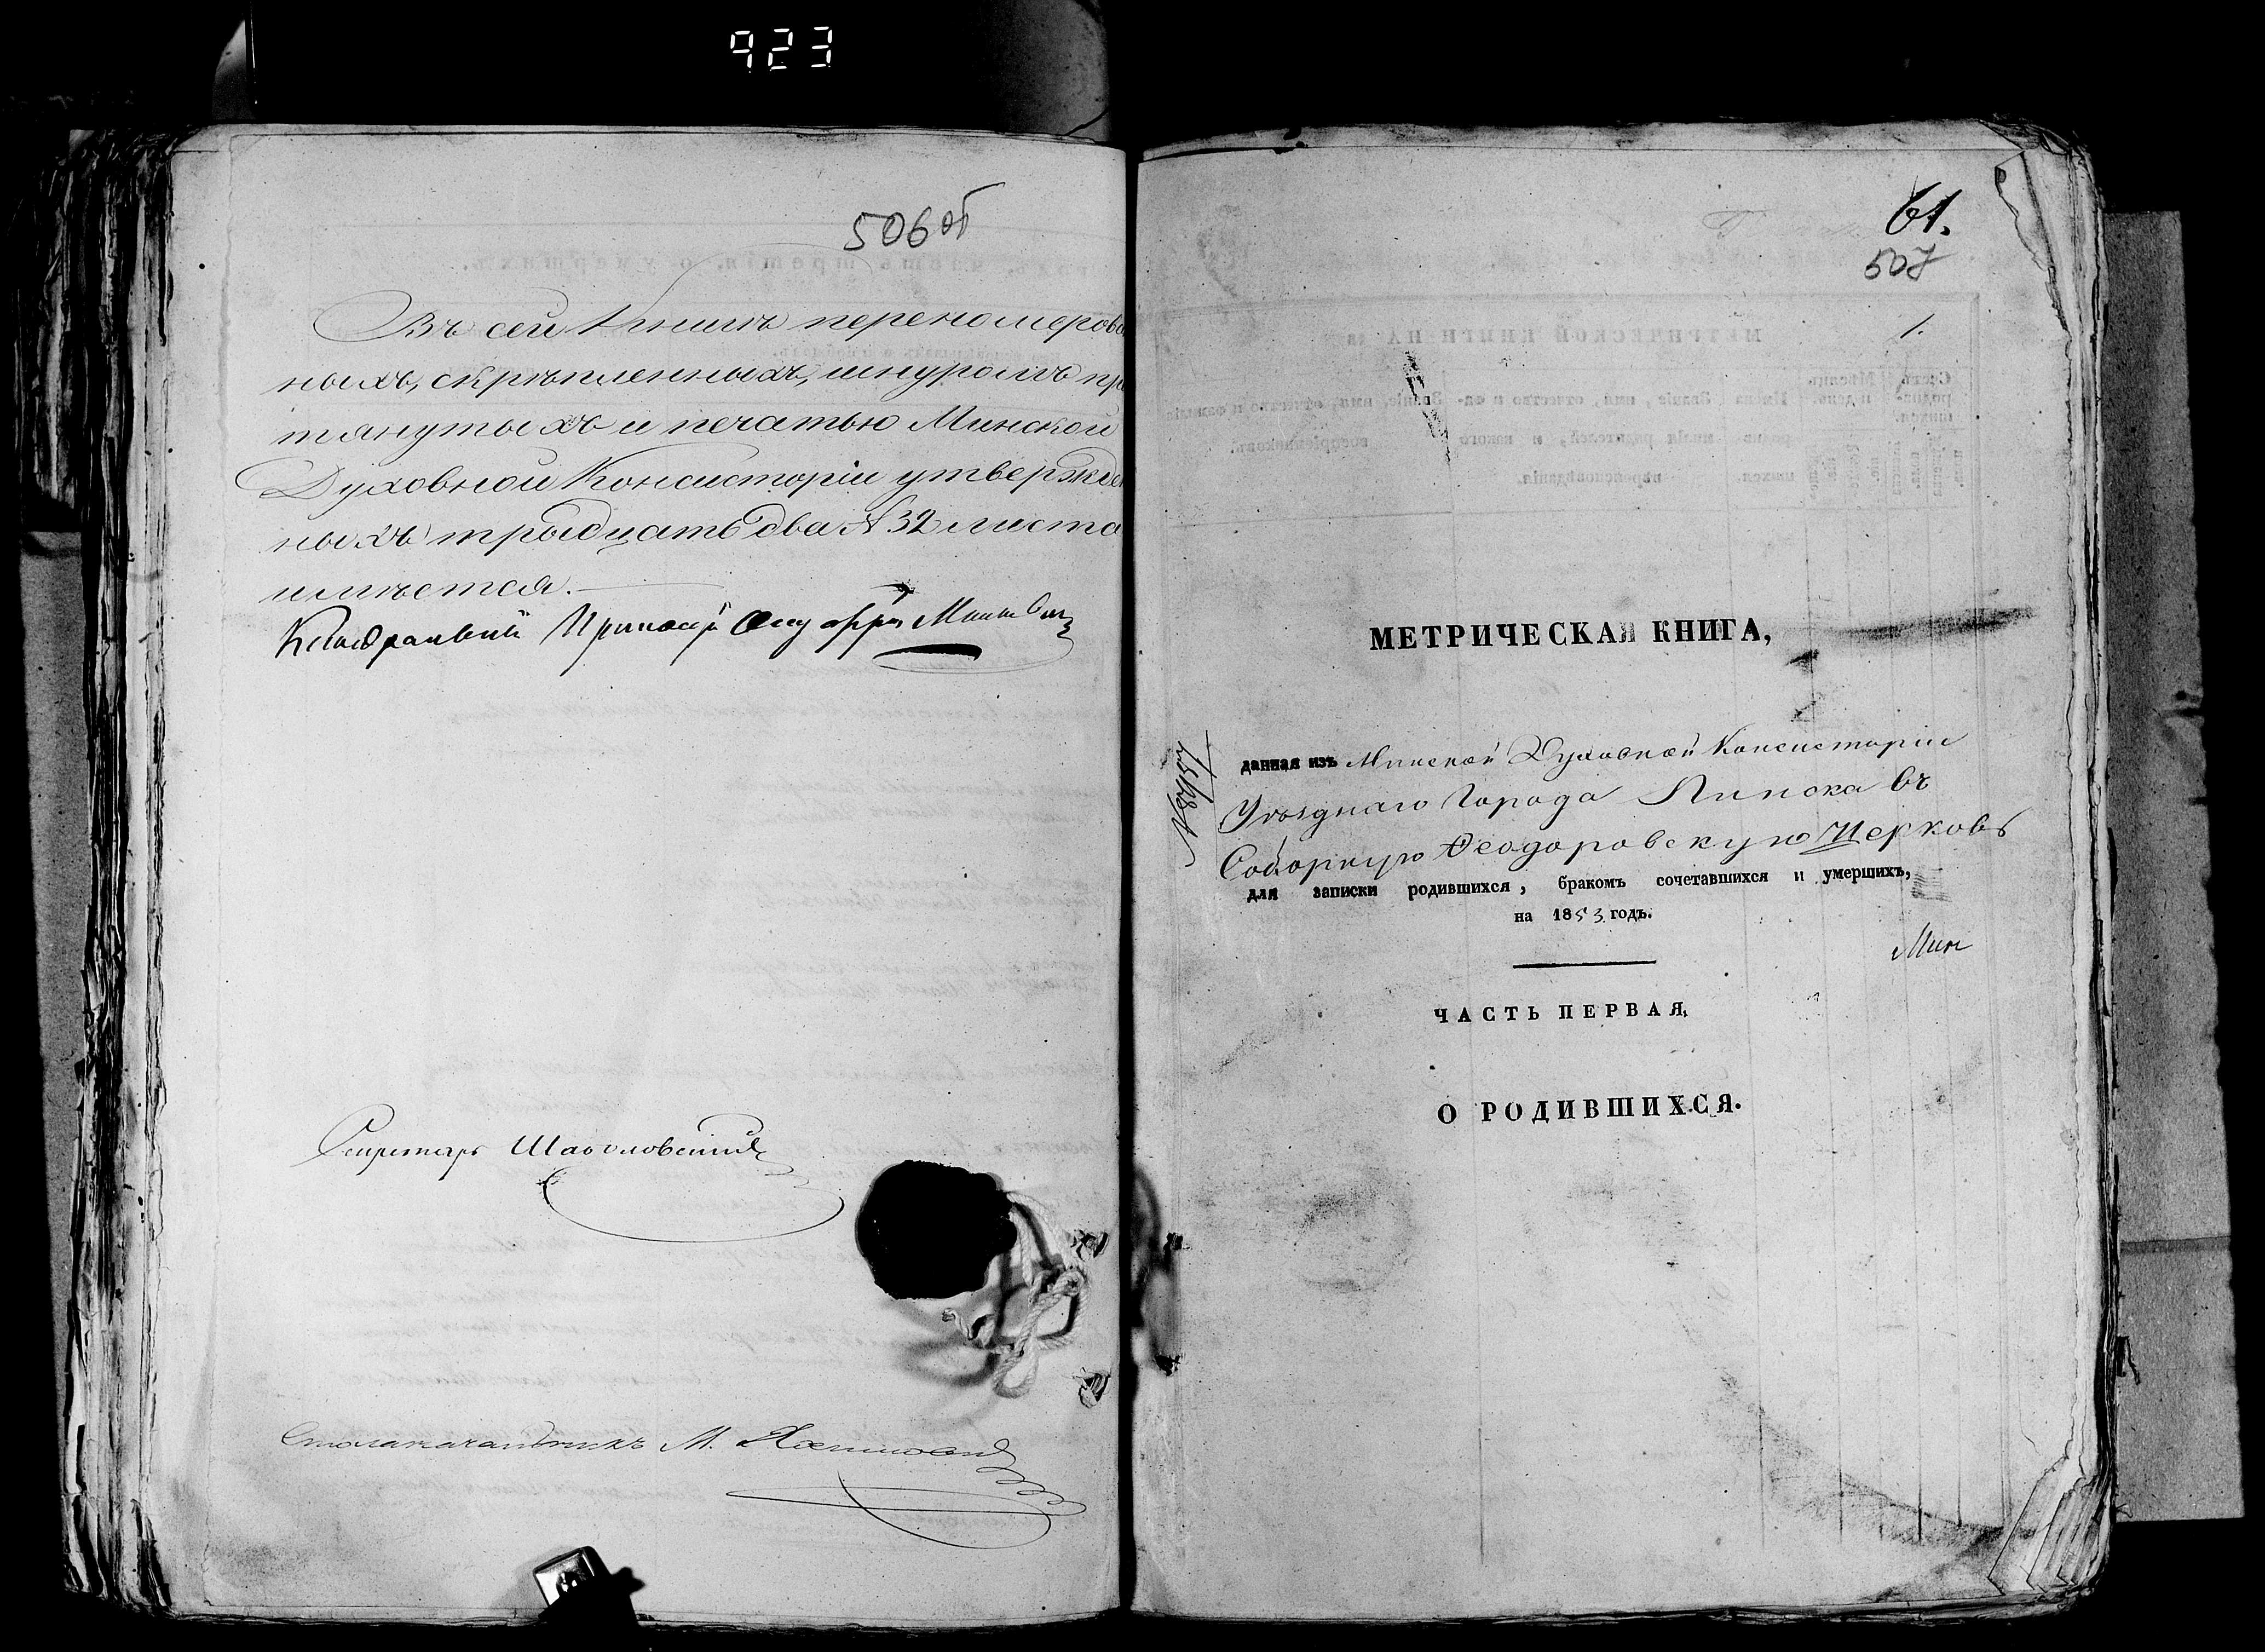 923
506об
Въ сей Книгѣ перенумерова
ныхъ, скрѣпленныхъ, шнуромъ пр
тянутыхъ и печатью Минской
Духовной Консисторіи утвержден
ныхъ тридцать два № 32 листа
имѣется.
Секретарь
Столоначальникъ М.
61.
507
1.
МЕТРИЧЕСКАЯ КНИГА,
№ 8457
данная изъ Минской Духовной Консисторіи
Уѣзднаго Города Пинска въ
Соборную Ѳеодоровскую Церковь
для записки родившихся, бракомъ сочетавшихся и умершихъ,
на 1853 годъ.
Мин
ЧАСТЬ ПЕРВАЯ,
О РОДИВШИХСЯ.